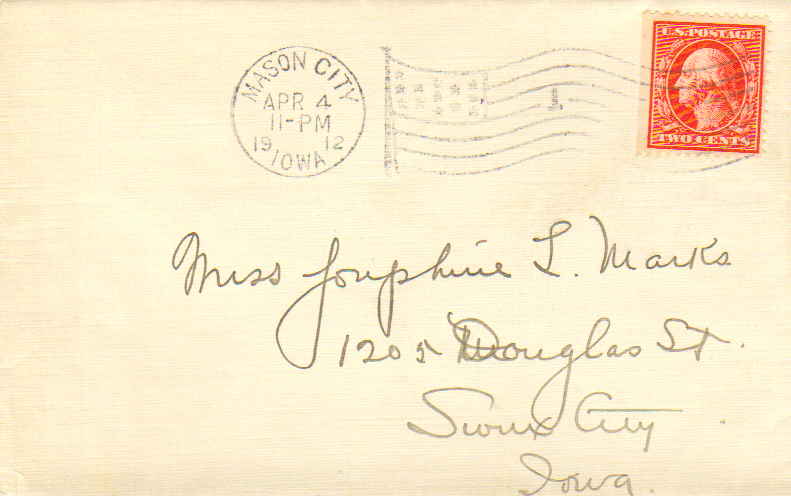 U.S. POSTAGE
TWO CENTS
MASON CITY
APR 4
11-PM
19 12
IOWA
Miss Josephine L. Marks
1205 Douglas St.
Sioux City
Iowa.